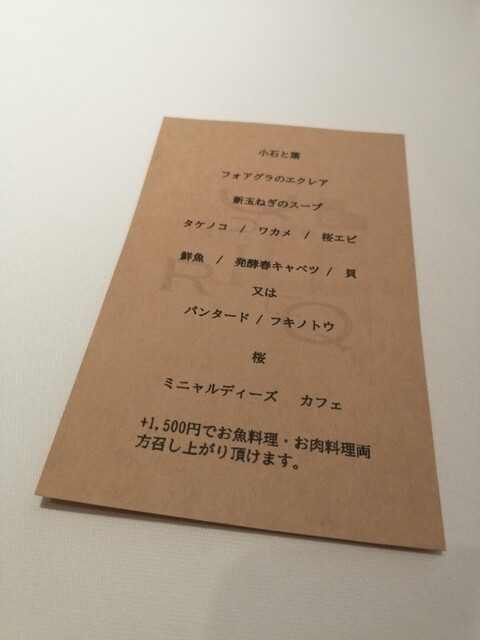 小石と葉
フォアグラのエクレア
新玉ねぎのスープ
タケノコ / ワカメ / 桜エビ
鮮魚 / 発酵春キャベツ / 貝
又は
パンタード / フキノトウ
桜
ミニャルディーズ カフェ
+1,500円でお魚料理・お肉料理両
方召し上がり頂けます。